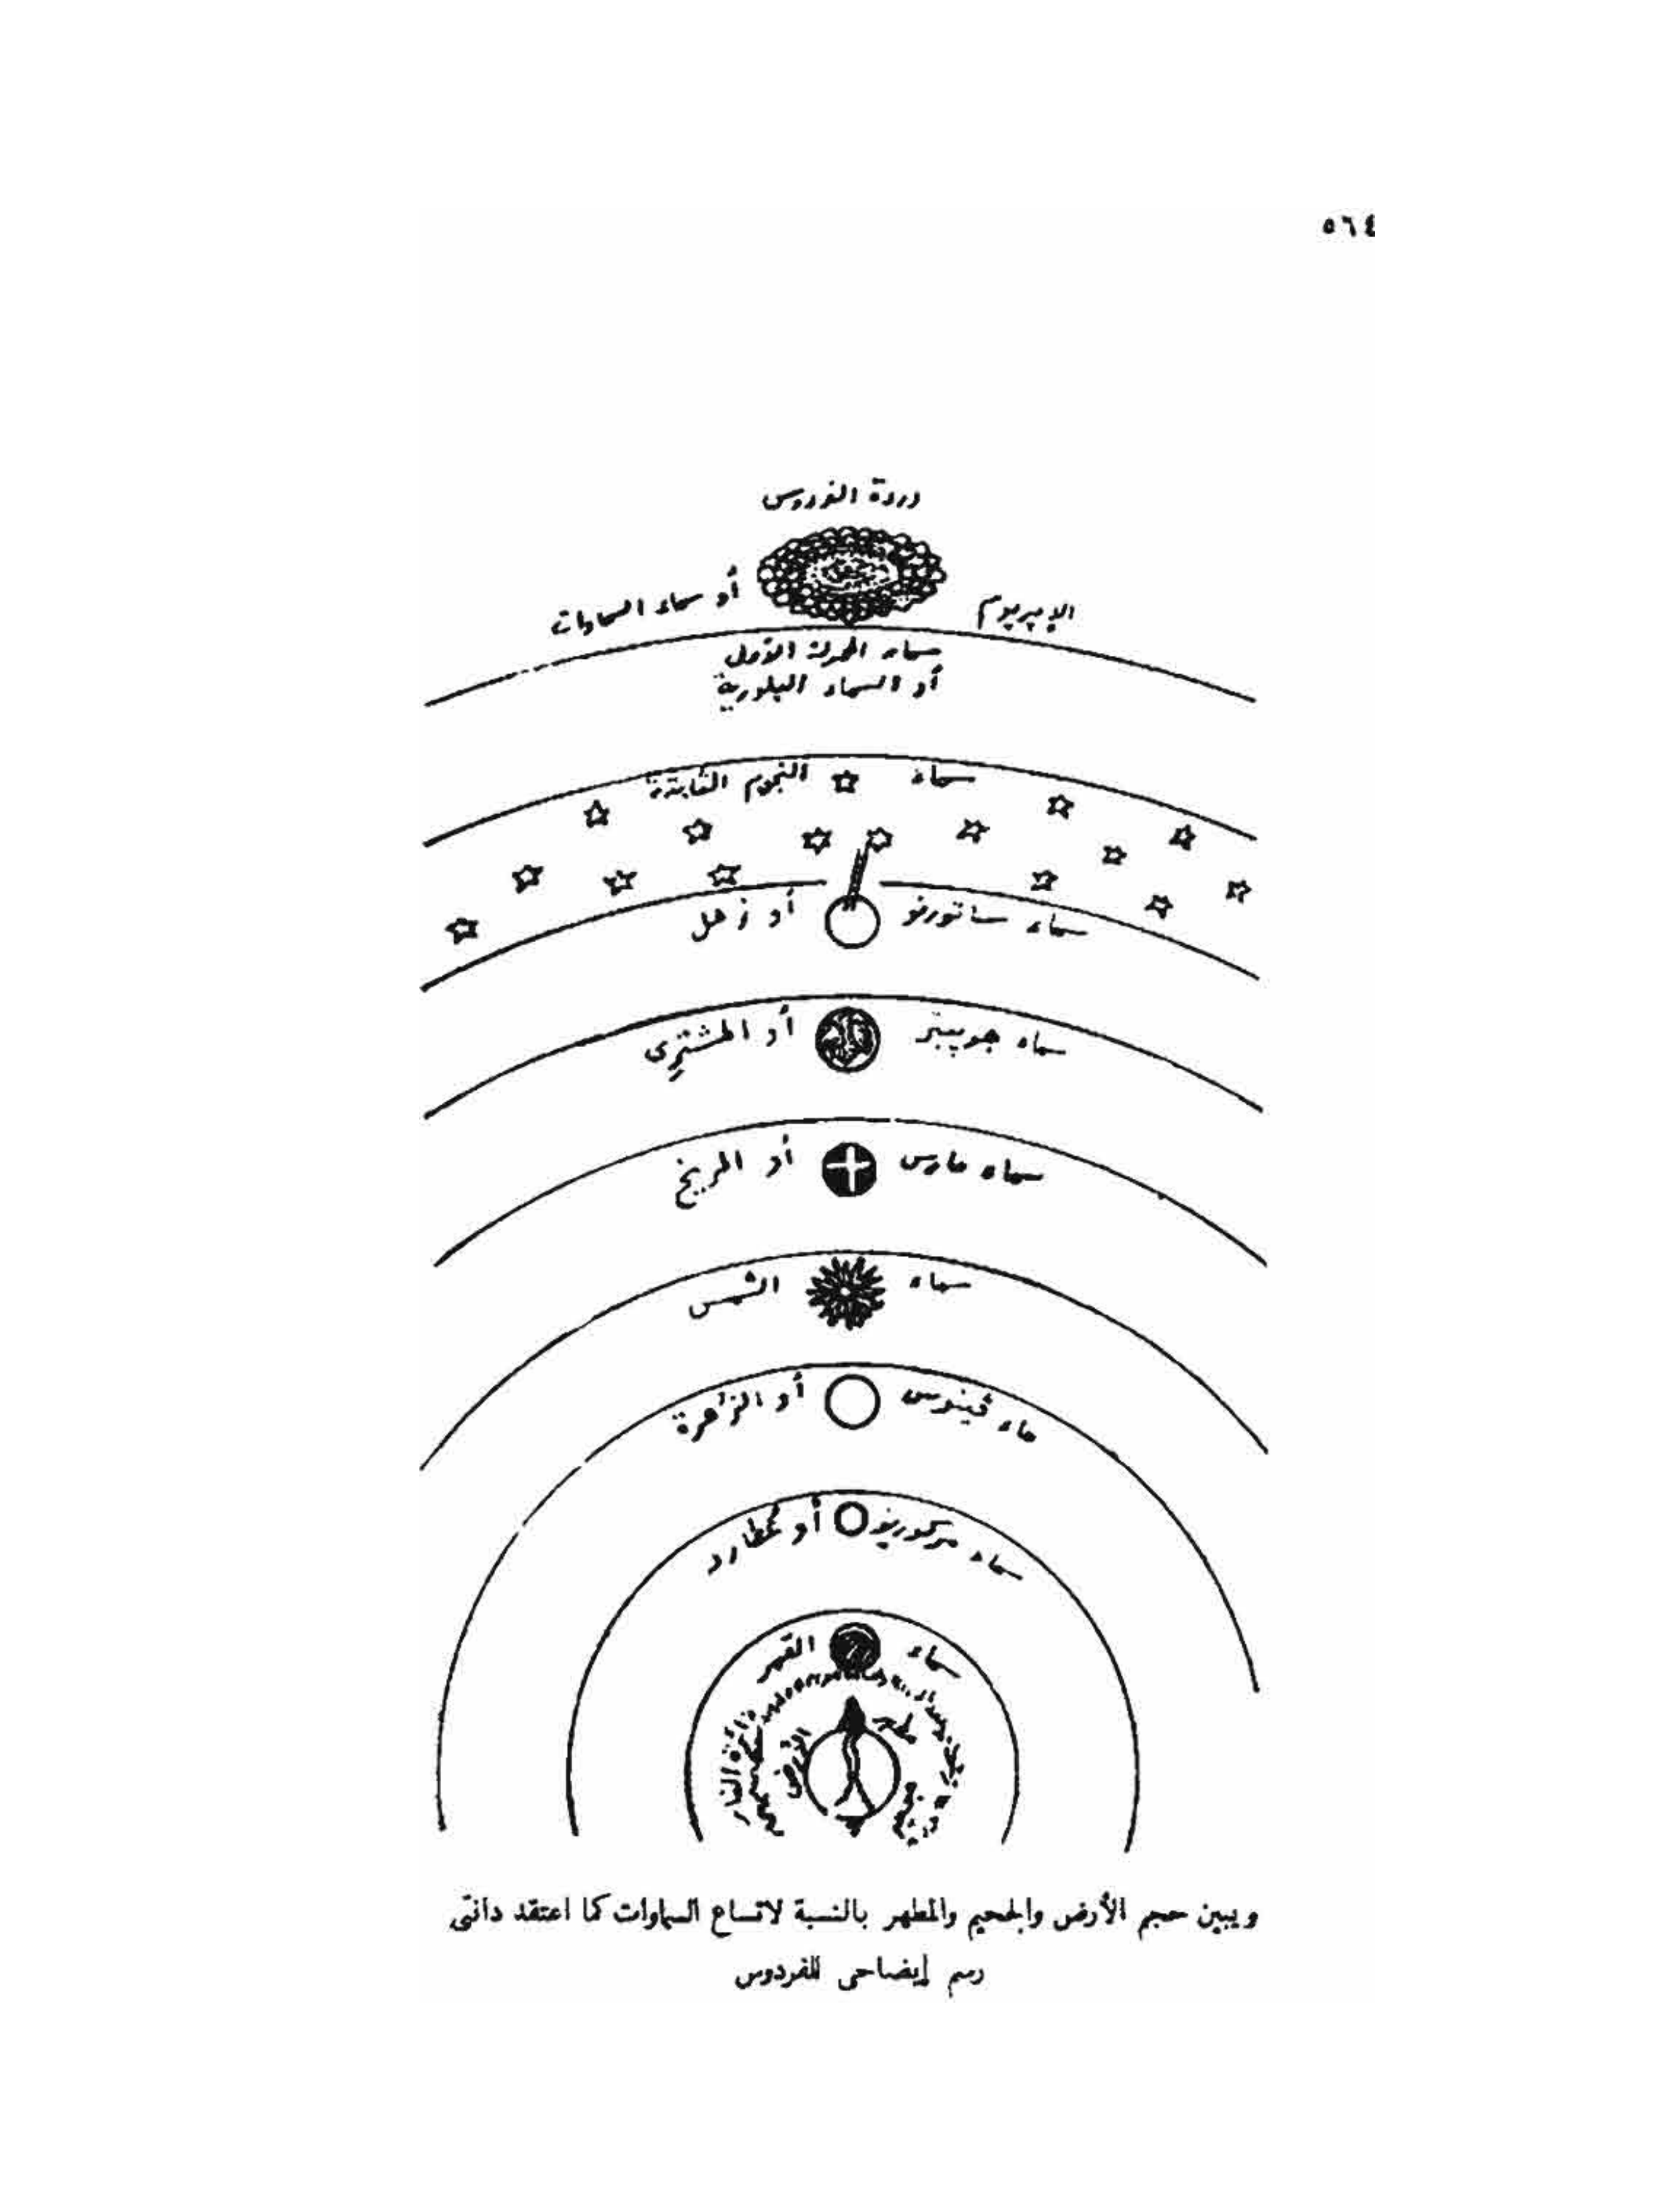 ٥٦٤
وردة الفردوس
الإمپريوم أو سماء السماوات
سماء المحرك الأول
أو السماء البلورية
سماء النجوم الثابتة
سماء ساتورنو أو زحل
سماء جوپيتر أو المشترى
سماء مارس أو المريخ
سماء الشمس
سماء ڤينوس أو الزهرة
سماء مركوريو أو عطارد
سماء القمر
ويبين حجم الأرض والجحيم والمطهر بالنسبة لاتساع السماوات كما اعتقد دانتى
رسم إيضاحى للفردوس